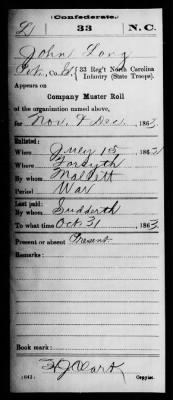 Confederate.
L | 33 | N.C.
John Long
Pvt., Co. G, 33 Reg't North Carolina
Infantry (State Troops).
Appears on
Company Muster Roll
of the organization named above,
for Nov. & Dec., 1863.
Enlisted:
When July 15, 1862
Where Forsyth
By whom Mallett
Period War
Last paid:
By whom Sudderth
To what time Oct 31, 1863.
Present or absent Present
Remarks:
Book mark:
(642)
Copyist.